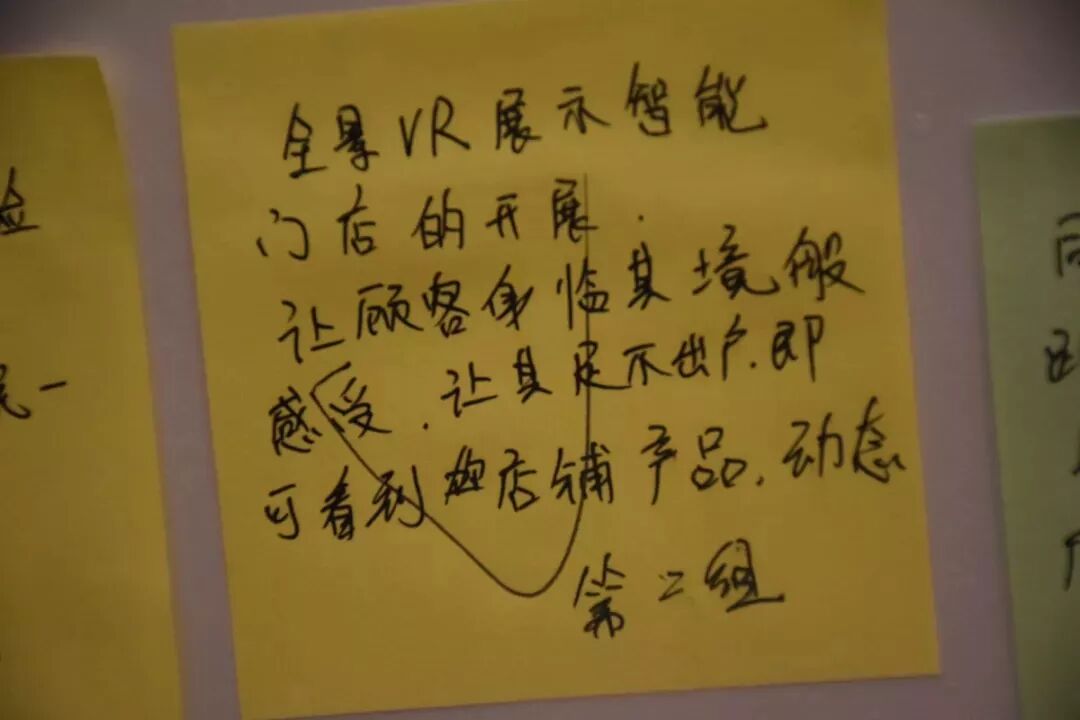 全景VR展示智能
门店的开展.
让顾客身临其境般
感受,让其足不出户.即
可看到店铺产品.动态
第二组